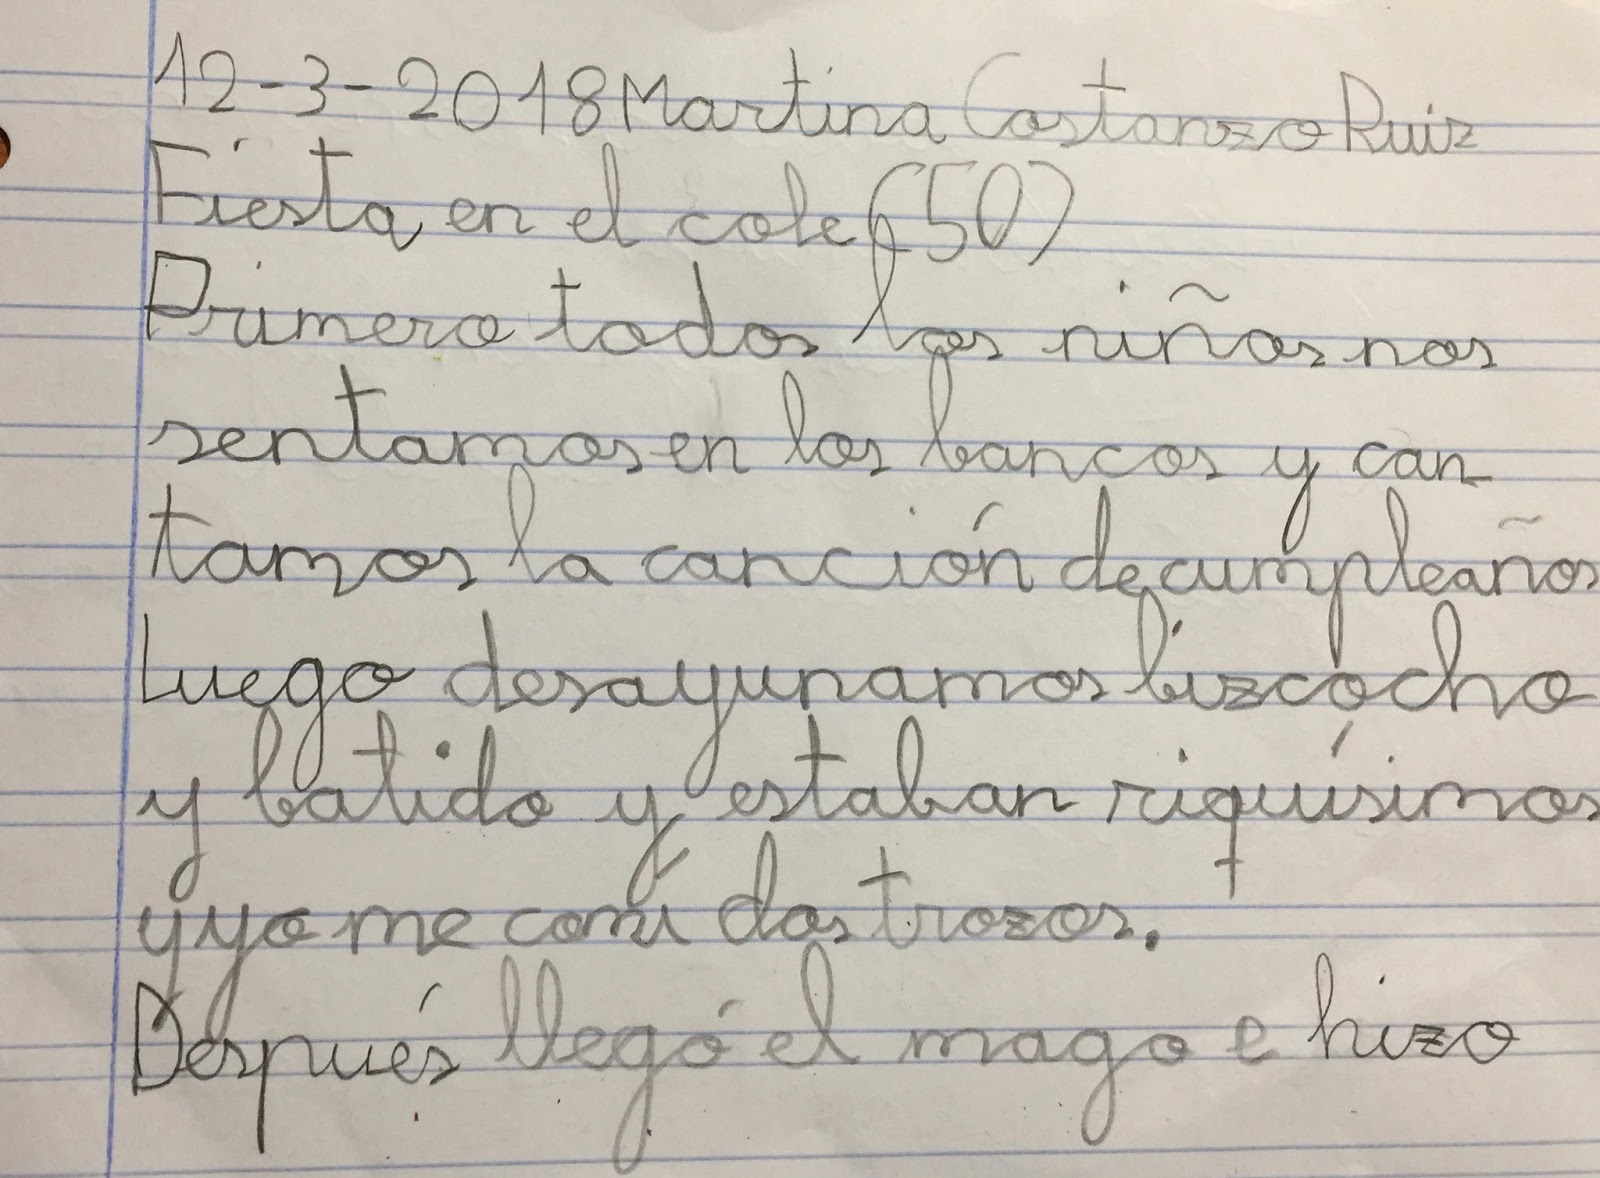 12-3-2018 Martina Costanzo Ruiz
Fiesta en el cole (50)
Primero todos los niños nos
sentamos en los bancos y can-
tamos la canción de cumpleaños
Luego desayunamos bizcocho
y batido y estaban riquísimos
y yo me comí dos trozos.
Después llegó el mago e hizo